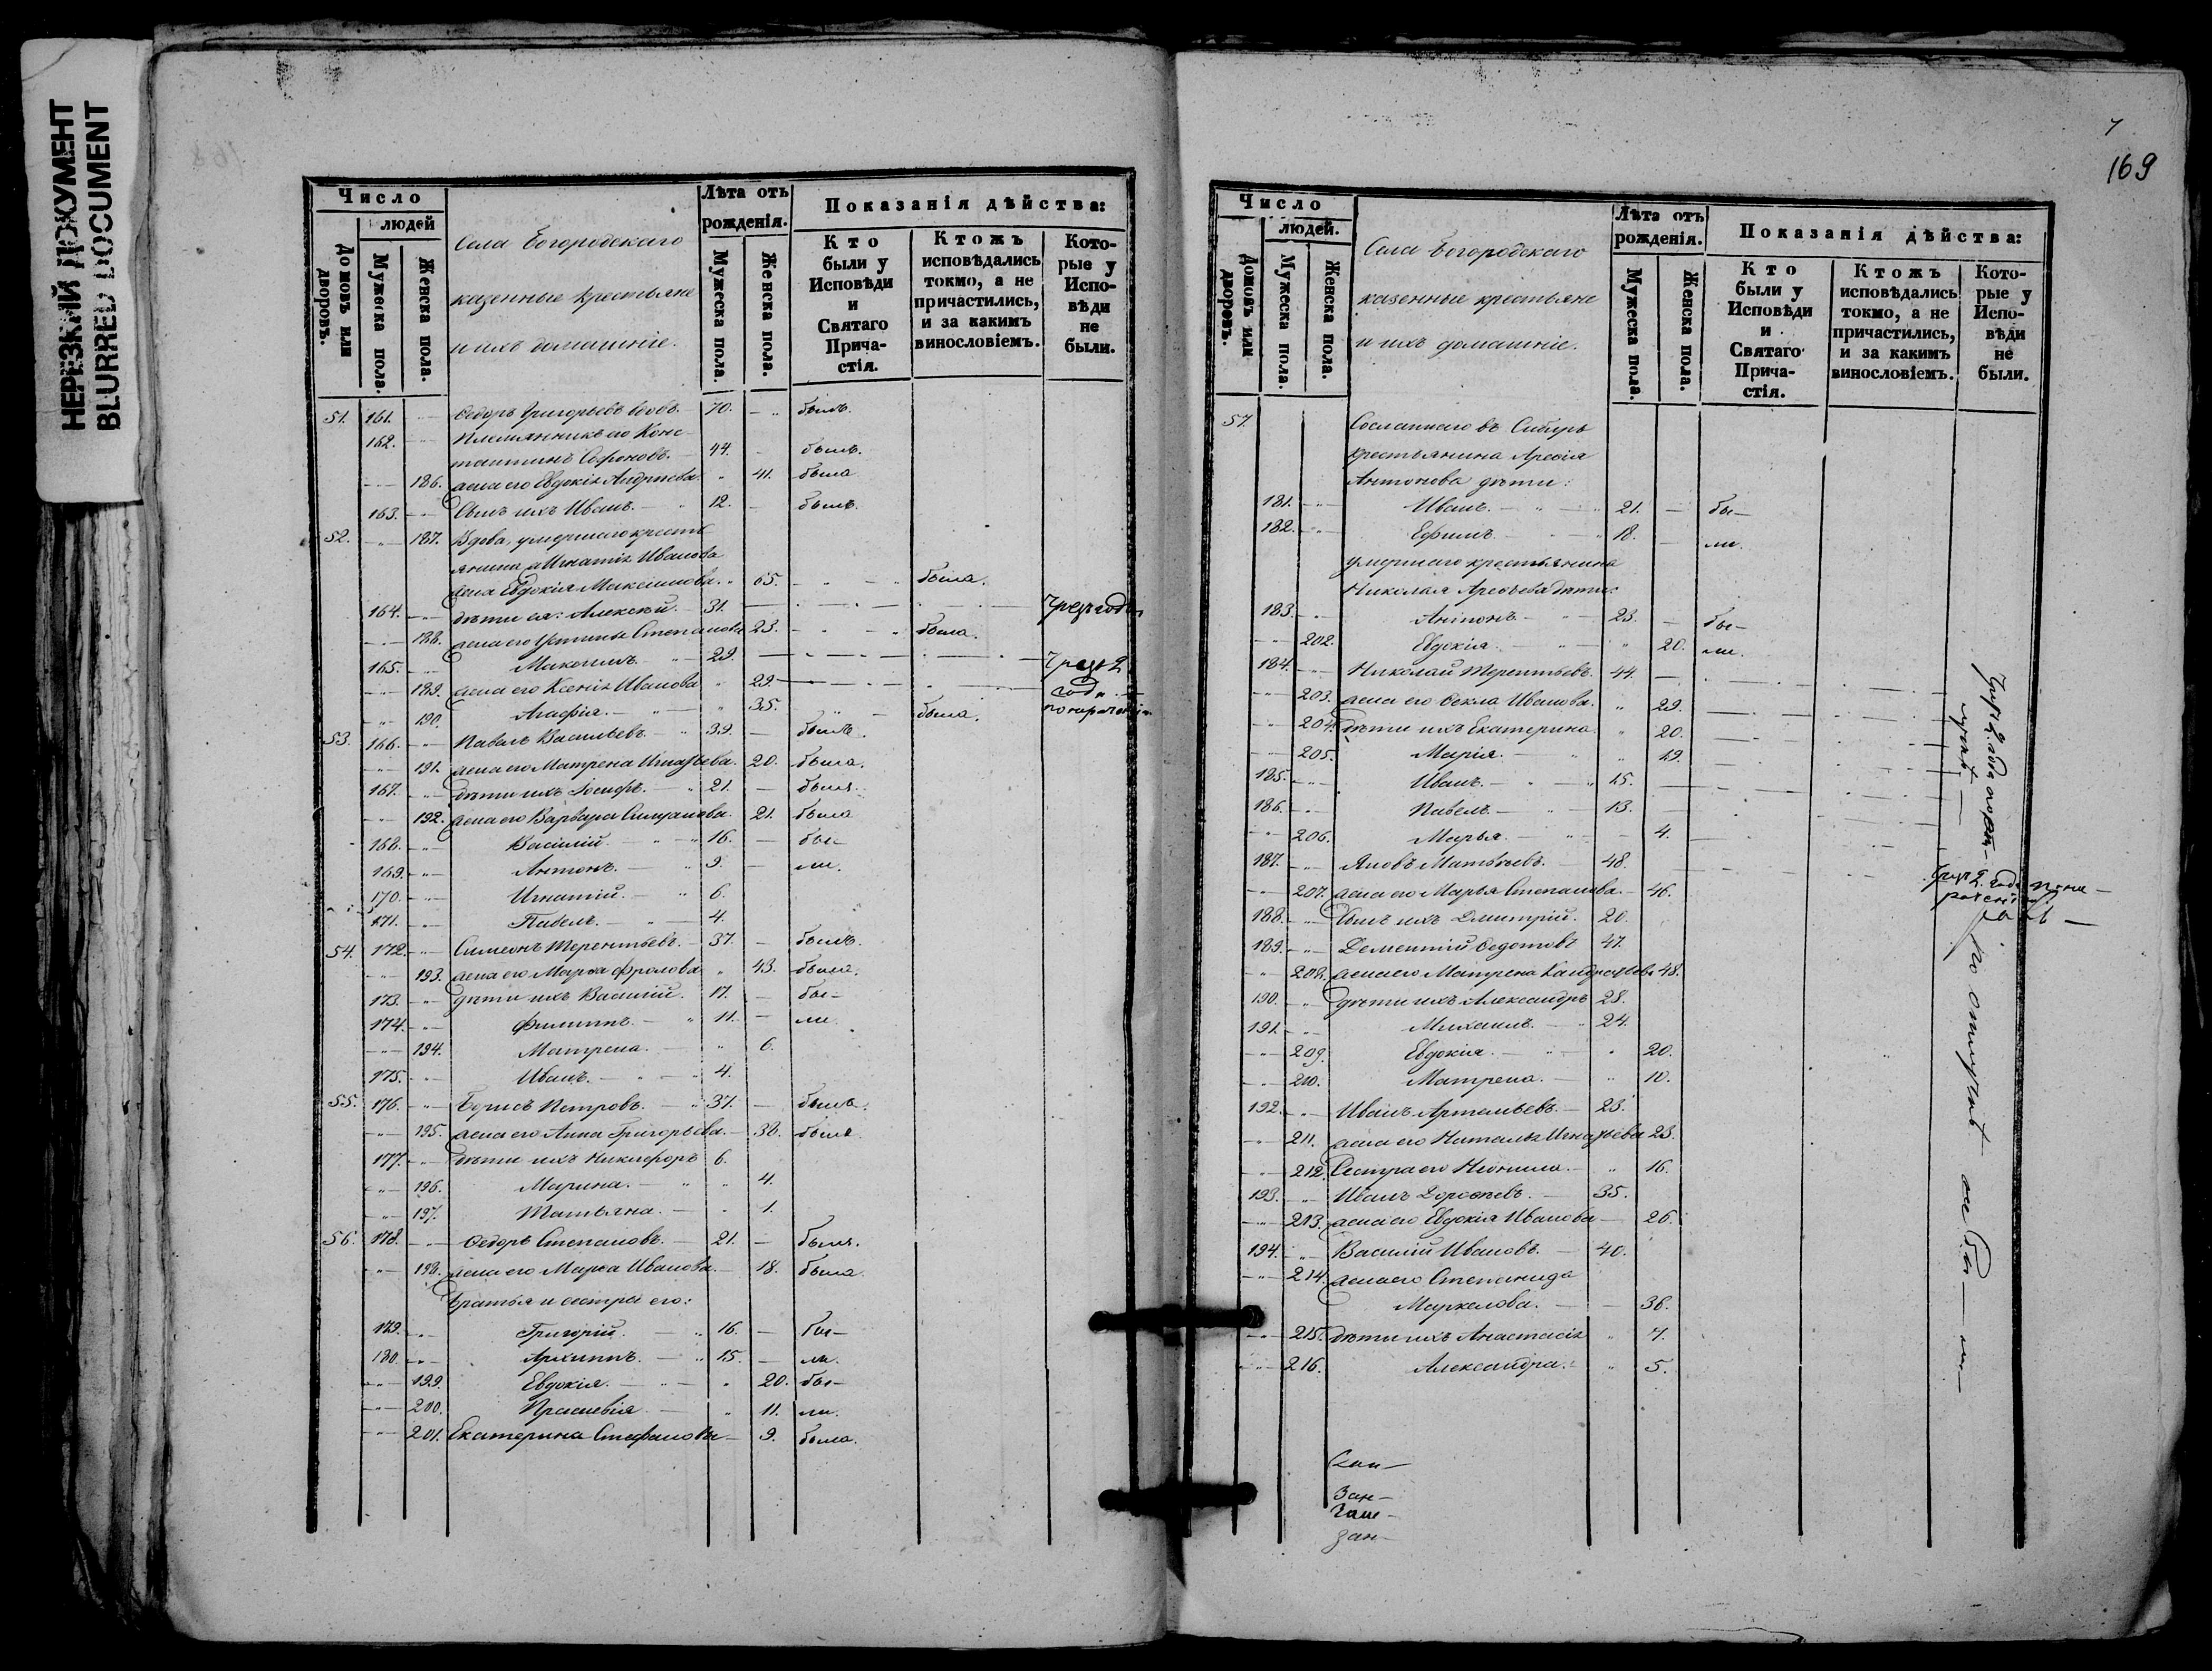 НЕРЕЗКИЙ ДОКУМЕНТ
BLURRED DOCUMENT
Число
людей
Домовъ или дворовъ.
Мужеска пола.
Женска пола.
Села Богородскаго
казенные крестьяне
и ихъ домашніе.
Лѣта отъ рожденія.
Мужеска пола.
Женска пола.
Показанія дѣйства:
Кто были у Исповѣди и Святаго Прича-стія.
Ктожъ исповѣдались токмо, а не причастились, и за какимъ винословіемъ.
Кото-рые у Испо-вѣди не были.
51. 161. Ѳедоръ Григорьевъ вдовъ. 70. былъ.
162. Племянникъ его Конс-
тантинъ Софоновъ. 44. былъ.
186. жена его Евдокія Андреева. 41. была
163. Сынъ ихъ Иванъ. 12. былъ.
52. 187. Вдова, умершаго кресть
янина Игнатія Иванова
жена Евдокія Максимова. 65. была.
164. дѣти ея: Алексѣй. 31.
188. жена его Устинья Степанова 23. была.
165. Максимъ 29. 
189. жена его Ксенія Иванова 29.
190. Агафія. 35. была.
53. 166. Павелъ Васильевъ 39. былъ.
191. жена его Матрена Игнатьева. 20. была.
167. дѣти ихъ Іосифъ. 21. былъ.
192. жена его Варвара 21. была
168. Василій. 16. бы-
169. Антонъ. 9. ли.
170. Игнатій. 6.
171. Павелъ. 4.
54. 172. Симеонъ Терентьевъ. 37. былъ.
193. жена его Марѳа Фролова 43. была.
173. дѣти ихъ Василій. 17. бы-
174. Филиппъ. 11. ли.
194. Матрена. 6.
175. Иванъ. 4.
55. 176. Борисъ Петровъ. 37. былъ.
195. жена его Анна Григорьева. 38. была.
177. дѣти ихъ Никифоръ 6.
196. Марина. 4.
197. Татьяна. 1.
56. 178. Ѳедоръ Степановъ. 21. былъ.
198. жена его Марѳа Иванова. 18. была.
братья и сестры его:
179. Григорій. 16. бы-
180. Архиппъ. 15. ли.
199. Евдокія. 20. бы-
200. Прасковія 11. ли.
201. Екатерина Стефанова 9. была.
7
169
Число
людей.
Домовъ или дворовъ.
Мужеска пола.
Женска пола.
Села Богородскаго
казенные крестьяне
и ихъ домашніе.
Лѣта отъ рожденія.
Мужеска пола.
Женска пола.
Показанія дѣйства:
Кто были у Исповѣди и Святаго Прича-стія.
Ктожъ исповѣдались токмо, а не причастились, и за какимъ винословіемъ.
Кото-рые у Испо-вѣди не были.
57. Сосланнаго въ Сибирь
крестьянина Арефія
Антонова дѣти:
181. Иванъ. 21. бы-
182. Ефимъ. 18. ли.
умершаго крестьянина
Николая Арефьева дѣти:
183. Антонъ. 23. бы-
202. Евдокія. 20. ли.
184. Николай Терентьевъ. 44.
203. жена его Ѳекла Иванова. 29.
204. дѣти ихъ Екатерина. 20.
205. Марія. 19.
185. Иванъ. 15.
186. Павелъ. 13.
206. Марья. 4.
187. Яковъ Матвѣевъ. 48.
207. жена его Марья Степанова. 46.
188. Сынъ ихъ Дмитрій. 20.
189. Дементій Ѳедотовъ 47.
208. жена его Матрена 48.
190. дѣти ихъ Александръ 28.
191. Михаилъ. 24.
209. Евдокія. 20.
210. Матрена. 10.
192. Иванъ Артемьевъ. 23.
211. жена его Наталья Игнатьева 23.
212. Сестра его Неонила. 16.
193. Иванъ Дорофѣевъ. 35.
213. жена его Евдокія Иванова 26.
194. Василій Ивановъ. 40.
214. жена его Степанида
Маркелова. 36.
215. дѣти ихъ Анастасія 7.
216. Александра. 5.